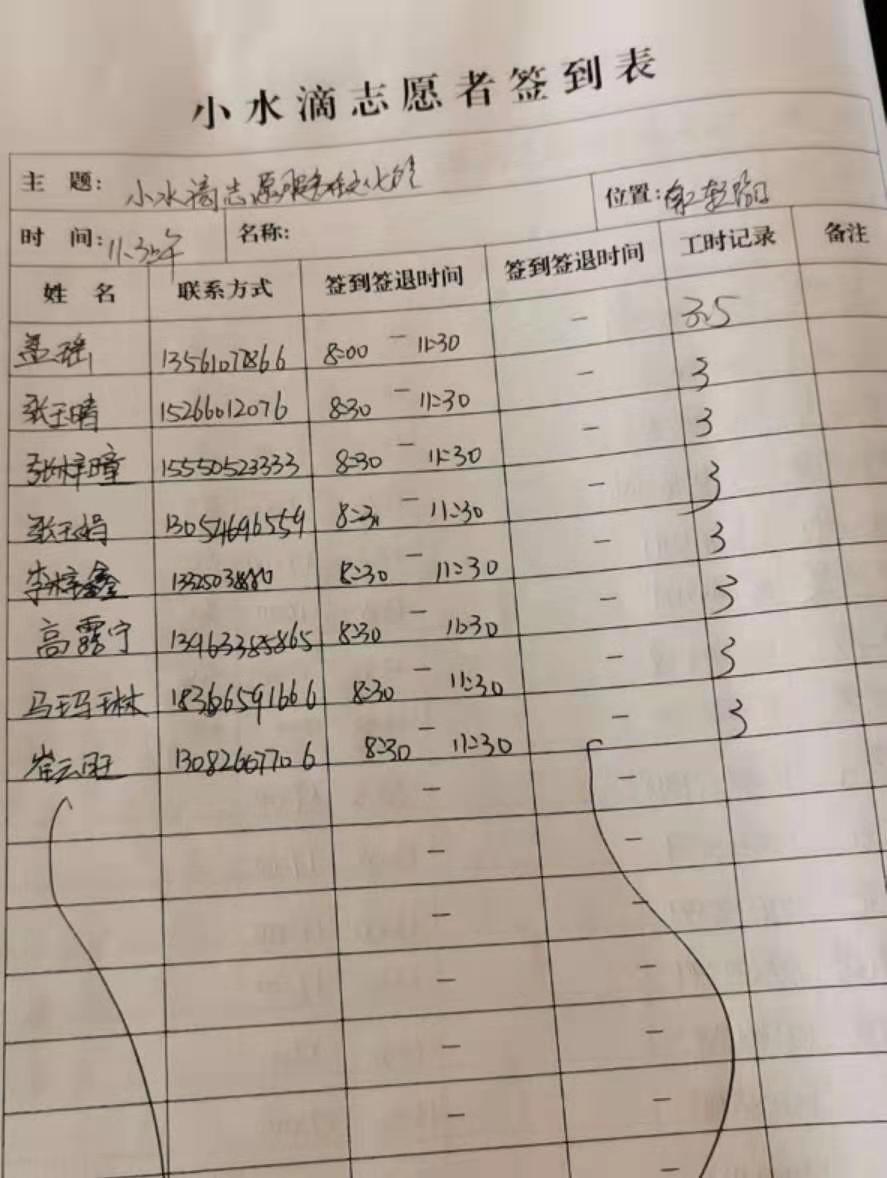 小水滴志愿者签到表
主 题: 小水滴志愿服务在文化 位置:
时 间: 11.3上午 名称:
姓 名 联系方式 签到签退时间 签到签退时间 工时记录 备注
孟瑶 13561077866 8:00 — 11:30 — 3.5
张玉晴 15266012076 8:30 — 11:30 — 3
张梓瞳 15550523333 8:30 — 11:30 — 3
张玉娟 13054696559 8:30 — 11:30 — 3
李梓鑫 8:30 — 11:30 — 3
高露宁 13963385865 8:30 — 11:30 — 3
马玛琳 18366591666 8:30 — 11:30 — 3
崔云旺 13082667706 8:30 — 11:30 — 3
— —
— —
— —
— —
— —
— —
—